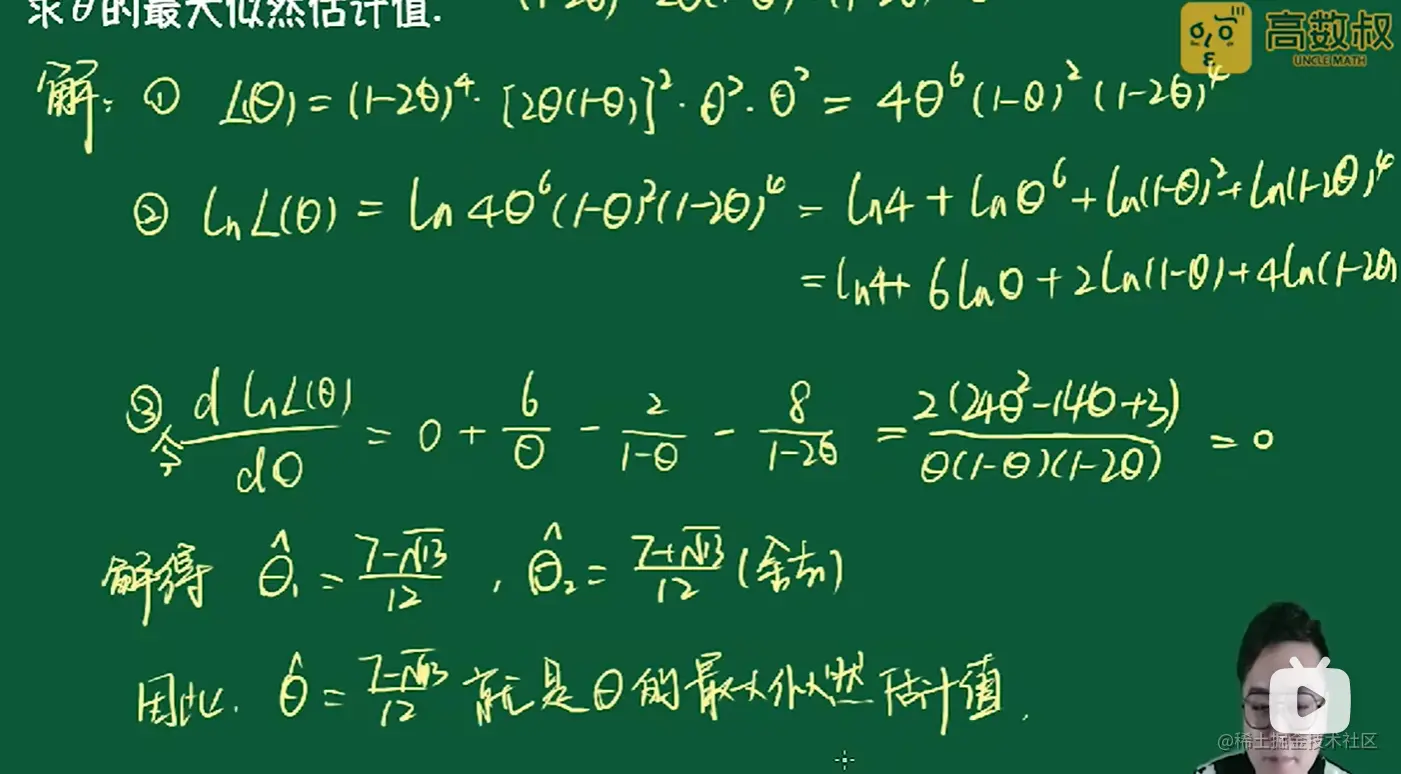 求θ的最大似然估计值.
高数叔
UNCLE MATH
解: ① L(θ) = (1-2θ)⁴·[2θ(1-θ)]²·θ²·θ² = 4θ⁶(1-θ)²(1-2θ)⁴
② ln L(θ) = ln 4θ⁶(1-θ)²(1-2θ)⁴ = ln4 + lnθ⁶ + ln(1-θ)² + ln(1-2θ)⁴
= ln4 + 6lnθ + 2ln(1-θ) + 4ln(1-2θ)
③ 令 d ln L(θ)/dθ = 0 + 6/θ - 2/(1-θ) - 8/(1-2θ) = 2(24θ²-14θ+3)/θ(1-θ)(1-2θ) = 0
解得 θ̂₁ = (7-√13)/12 , θ̂₂ = (7+√13)/12 (舍去)
因此. θ̂ = (7-√13)/12 就是θ的最大似然估计值.
@稀土掘金技术社区